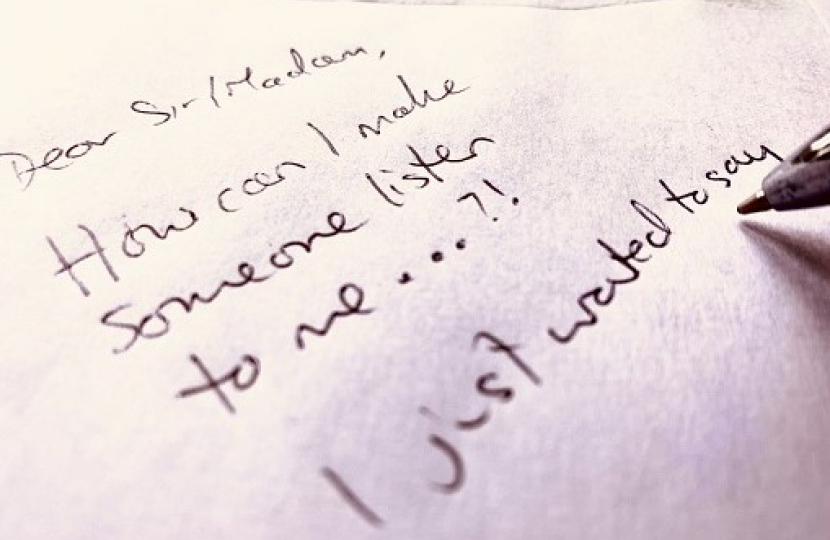 Dear Sir/Madam,
How can I make
someone listen
to me...?!
I just wanted to say